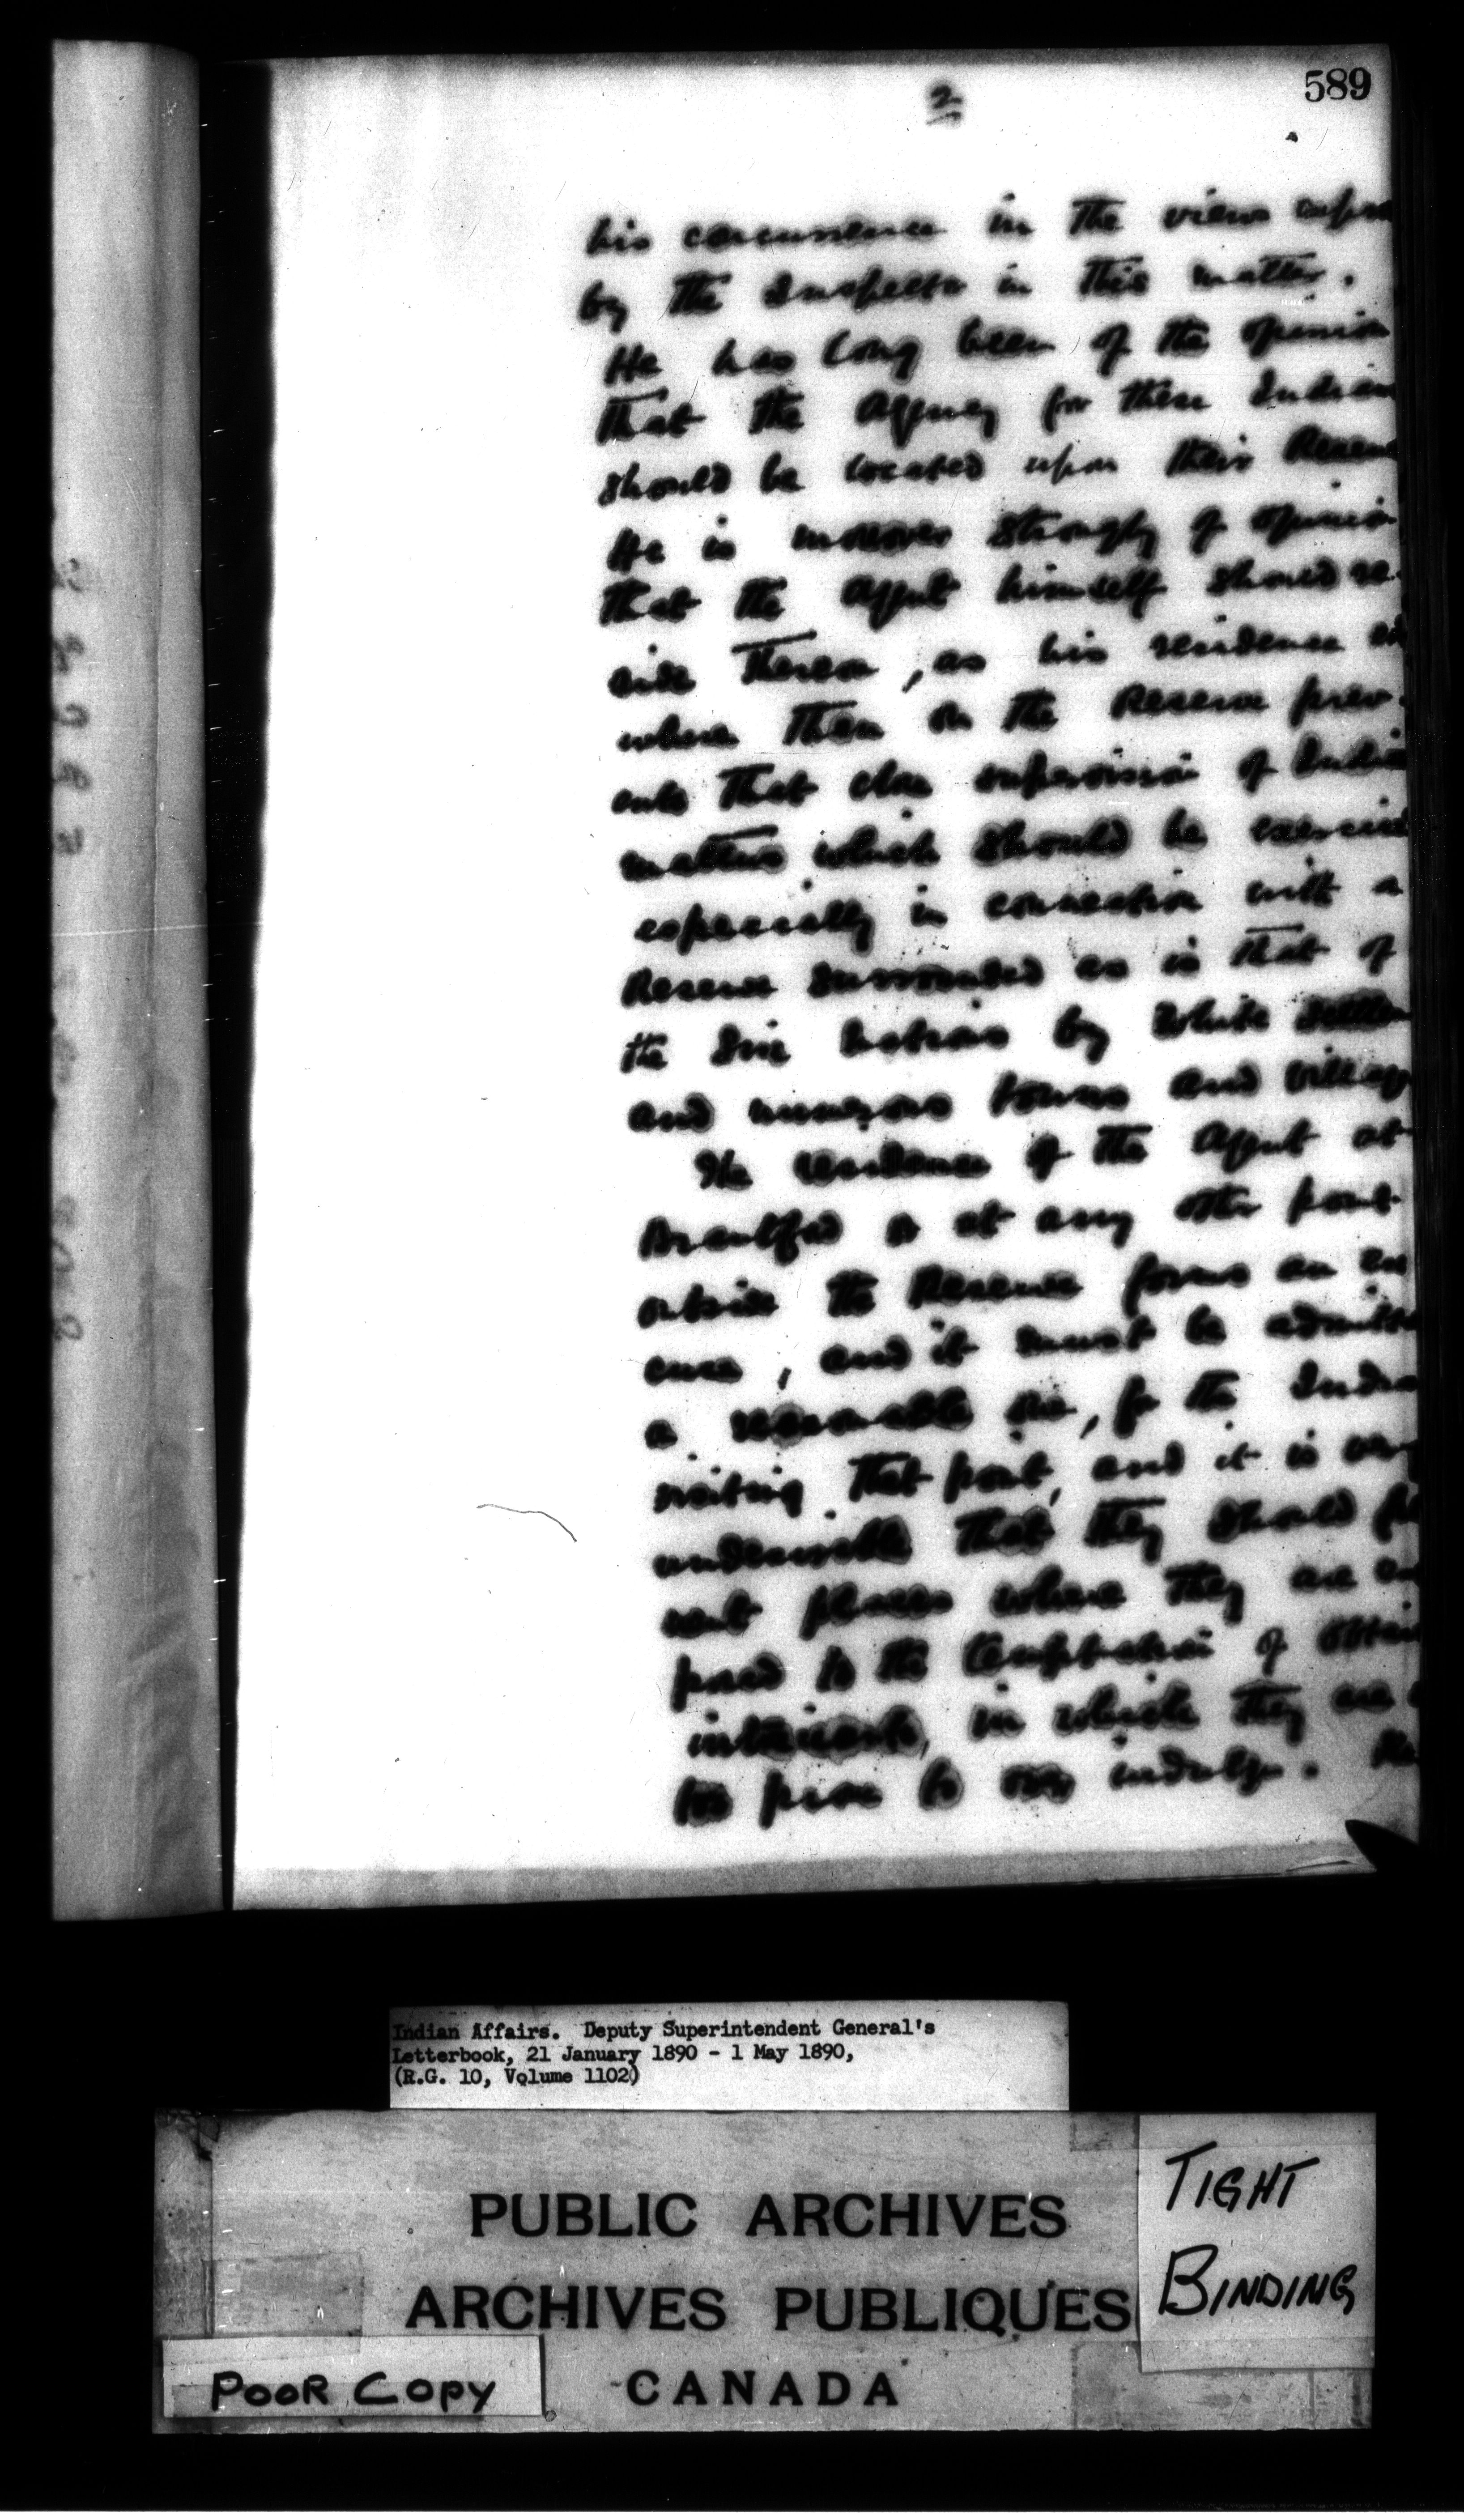 589
2
his concurrence in the views expre
by the Inspector in this matter.
He has long been of the opinion
that the Agency for these Indian
should be located upon their Reserve
He is moreover strongly of opinion
that the Agent himself should re-
side thereon, as his residence
where than on the Reserve prev-
ents that close supervision of Indian
matters which should be exercised
especially in connection with a
Reserve surrounded as is that of
the Six Nations by White settlem
and numerous towns and village
The residence of the Agent at
Brantford or at any other point
outside the Reserve forms an ex
cuse, and it must be admitte
a reasonable one, for the Indian
visiting that point, and it is very
undesirable that they should fre
quent places where they are ex
posed to the temptation of obtain
intoxicants, in which they are
too prone to over indulge.
Indian Affairs. Deputy Superintendent General's
Letterbook, 21 January 1890 - 1 May 1890,
(R.G. 10, Volume 1102)
PUBLIC ARCHIVES
ARCHIVES PUBLIQUES
CANADA
TIGHT
BINDING
POOR COPY